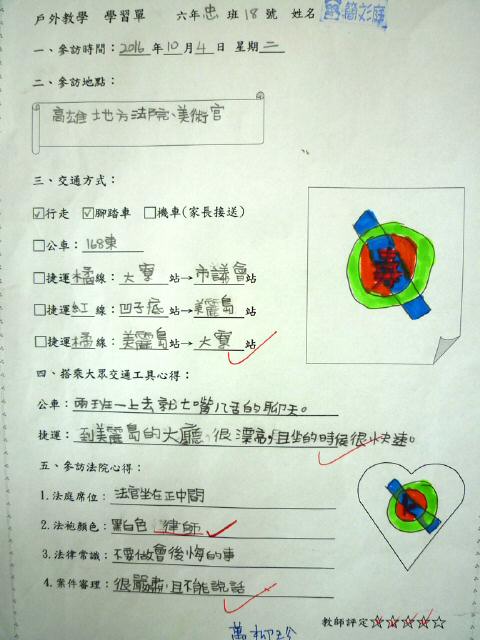 戶外教學 學習單 六年忠班18號 姓名 簡彣庭
一、參訪時間：2016年10月4日 星期二
二、參訪地點：
高雄地方法院、美術官
三、交通方式：
☑行走 ☑腳踏車 □機車(家長接送)
□公車：168東
□捷運橘線：大寮站→市議會站
□捷運紅線：凹子底站→美麗島站
□捷運橘線：美麗島站→大寮站
四、搭乘大眾交通工具心得：
公車：兩班一上去就七嘴八舌的聊天。
捷運：到美麗島的大廳，很漂亮，且坐的時候很快速。
五、參訪法院心得：
1.法庭席位：法官坐在正中間
2.法袍顏色：黑白色 律師
3.法律常識：不要做會後悔的事
4.案件審理：很嚴肅，且不能說話
教師評定☆☆☆☆☆